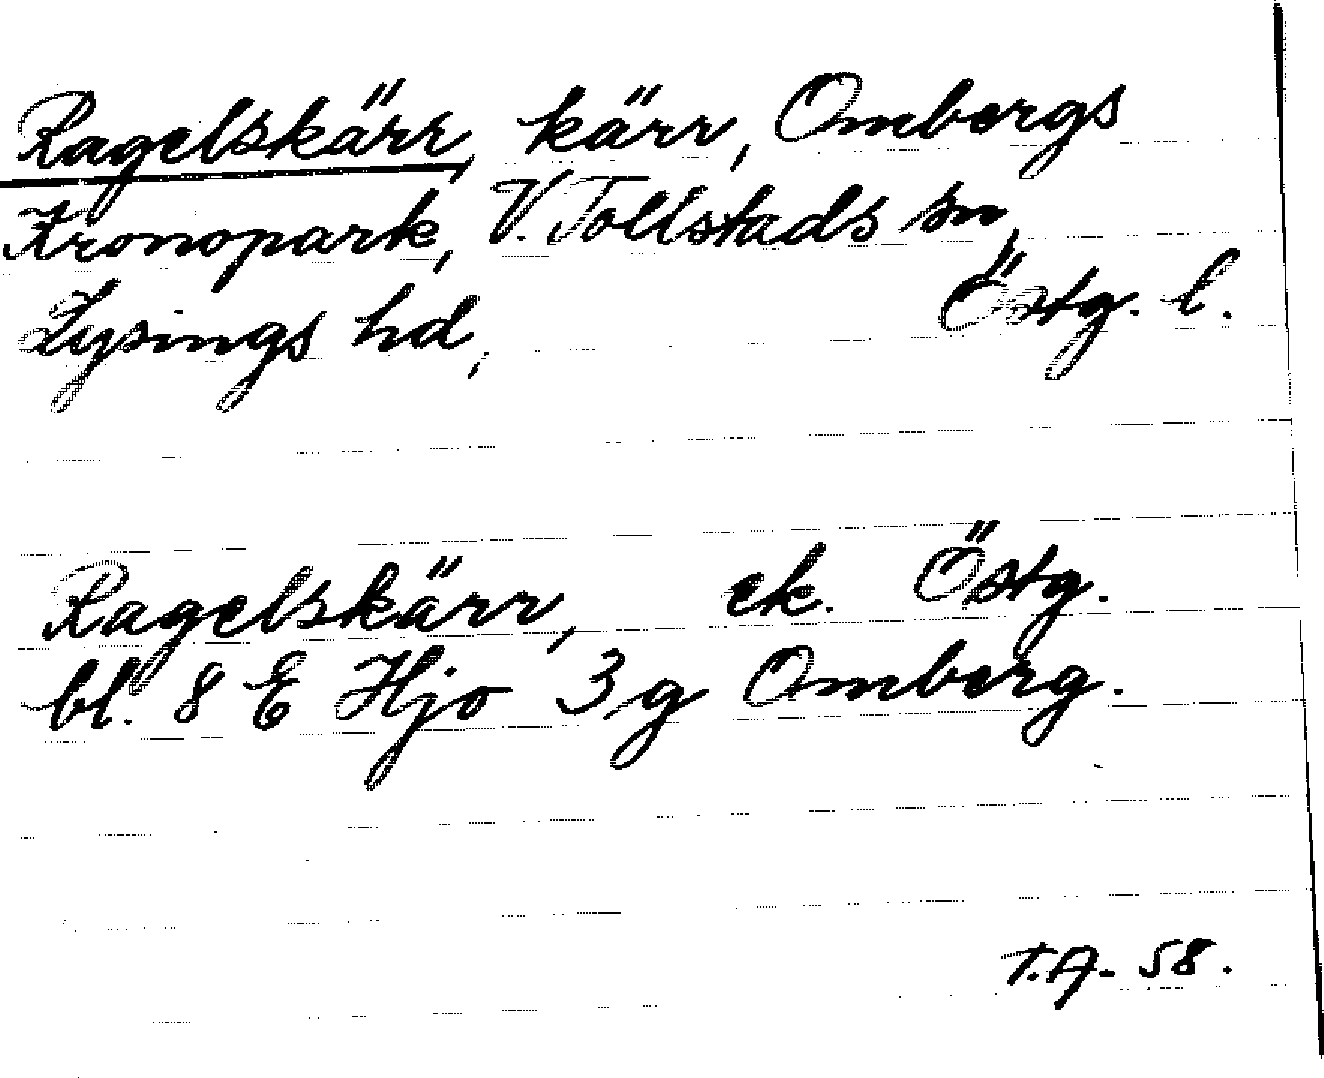 Ragelskärr, kärr, Ombergs
Kronopark, V. Tollstads sn,
Lysings hd, Östg. l.
Ragelskärr, ek. Östg.
bl. 8 E Hjo 3g Omberg.
T.A- 58.